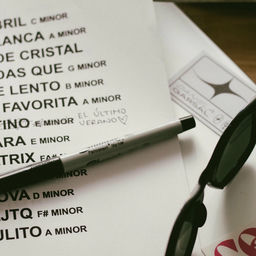 BRIL C MINOR
LANCA A MINOR
DE CRISTAL
DAS QUE G MINOR
E LENTO B MINOR
FAVORITA A MINOR
TINO E MINOR EL ÚLTIMO VERANO♡
ARA E MINOR
TRIX FA#
OVA D MINOR
JTQ F# MINOR
ULITO A MINOR